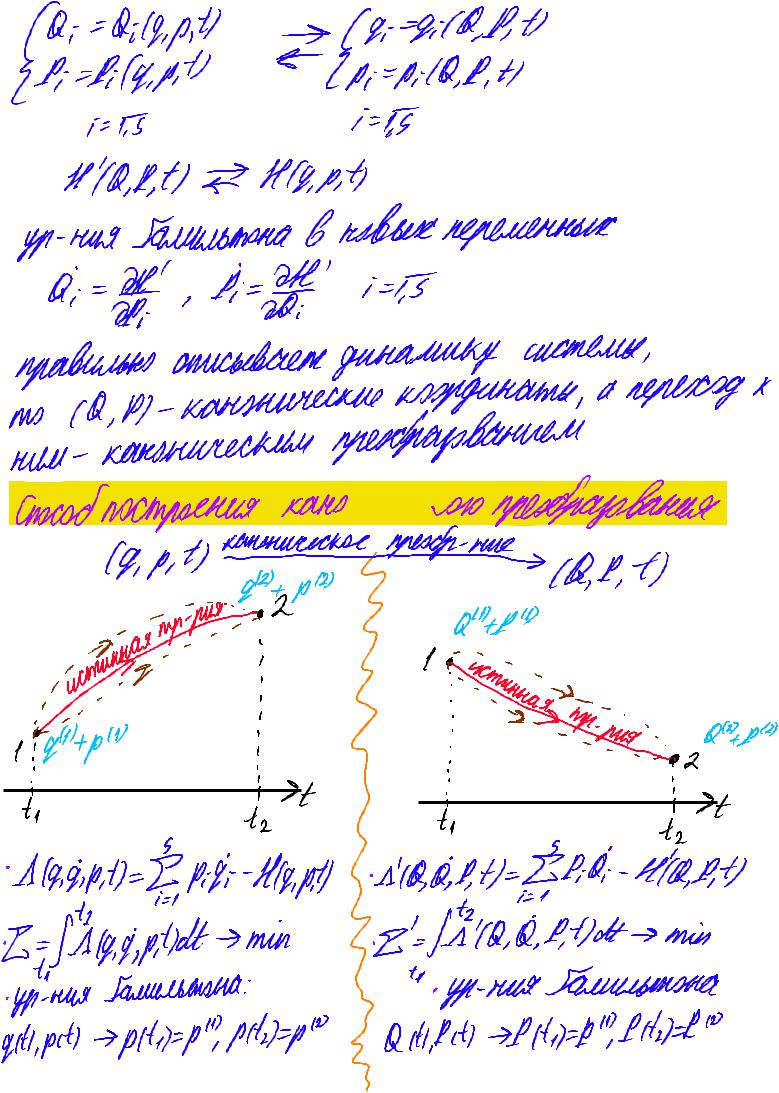 {Qi = Qi(q,p,t) ⇄ {qi = qi(Q,P,t)
{Pi = Pi(q,p,t) {pi = pi(Q,P,t)
i = 1,s i = 1,s
H'(Q,P,t) ⇄ H(q,p,t)
ур-ния Гамильтона в новых переменных
Q̇i = ∂H'/∂Pi , Ṗi = ∂H'/∂Qi i = 1,s
правильно описывает динамику системы,
то (Q,P) – канонические координаты, а переход к
ним – каноническим преобразованием
Способ построения кано ого преобразования
(q,p,t) каноническое преобр-ние → (Q,P,t)
q⁽²⁾+p⁽²⁾
2
истинная тр-рия
q
1
q⁽¹⁾+p⁽¹⁾
t₁ t₂ t
Q⁽¹⁾+P⁽¹⁾
1
истинная тр-рия
Q⁽²⁾+P⁽²⁾
2
t₁ t₂ t
· Λ(q,q̇,p,t) = ∑ᵢ₌₁ˢ pi q̇i – H(q,p,t)
· Σ = ∫ₜ₁ᵗ² Λ(q,q̇,p,t)dt → min
· ур-ния Гамильтона:
q(t), p(t) → p(t₁)=p⁽¹⁾, p(t₂)=p⁽²⁾
· Λ'(Q,Q̇,P,t) = ∑ᵢ₌₁ˢ Pi Q̇i – H'(Q,P,t)
· Σ' = ∫ₜ₁ᵗ² Λ'(Q,Q̇,P,t)dt → min
· ур-ния Гамильтона
Q(t), P(t) → P(t₁)=P⁽¹⁾, P(t₂)=P⁽²⁾